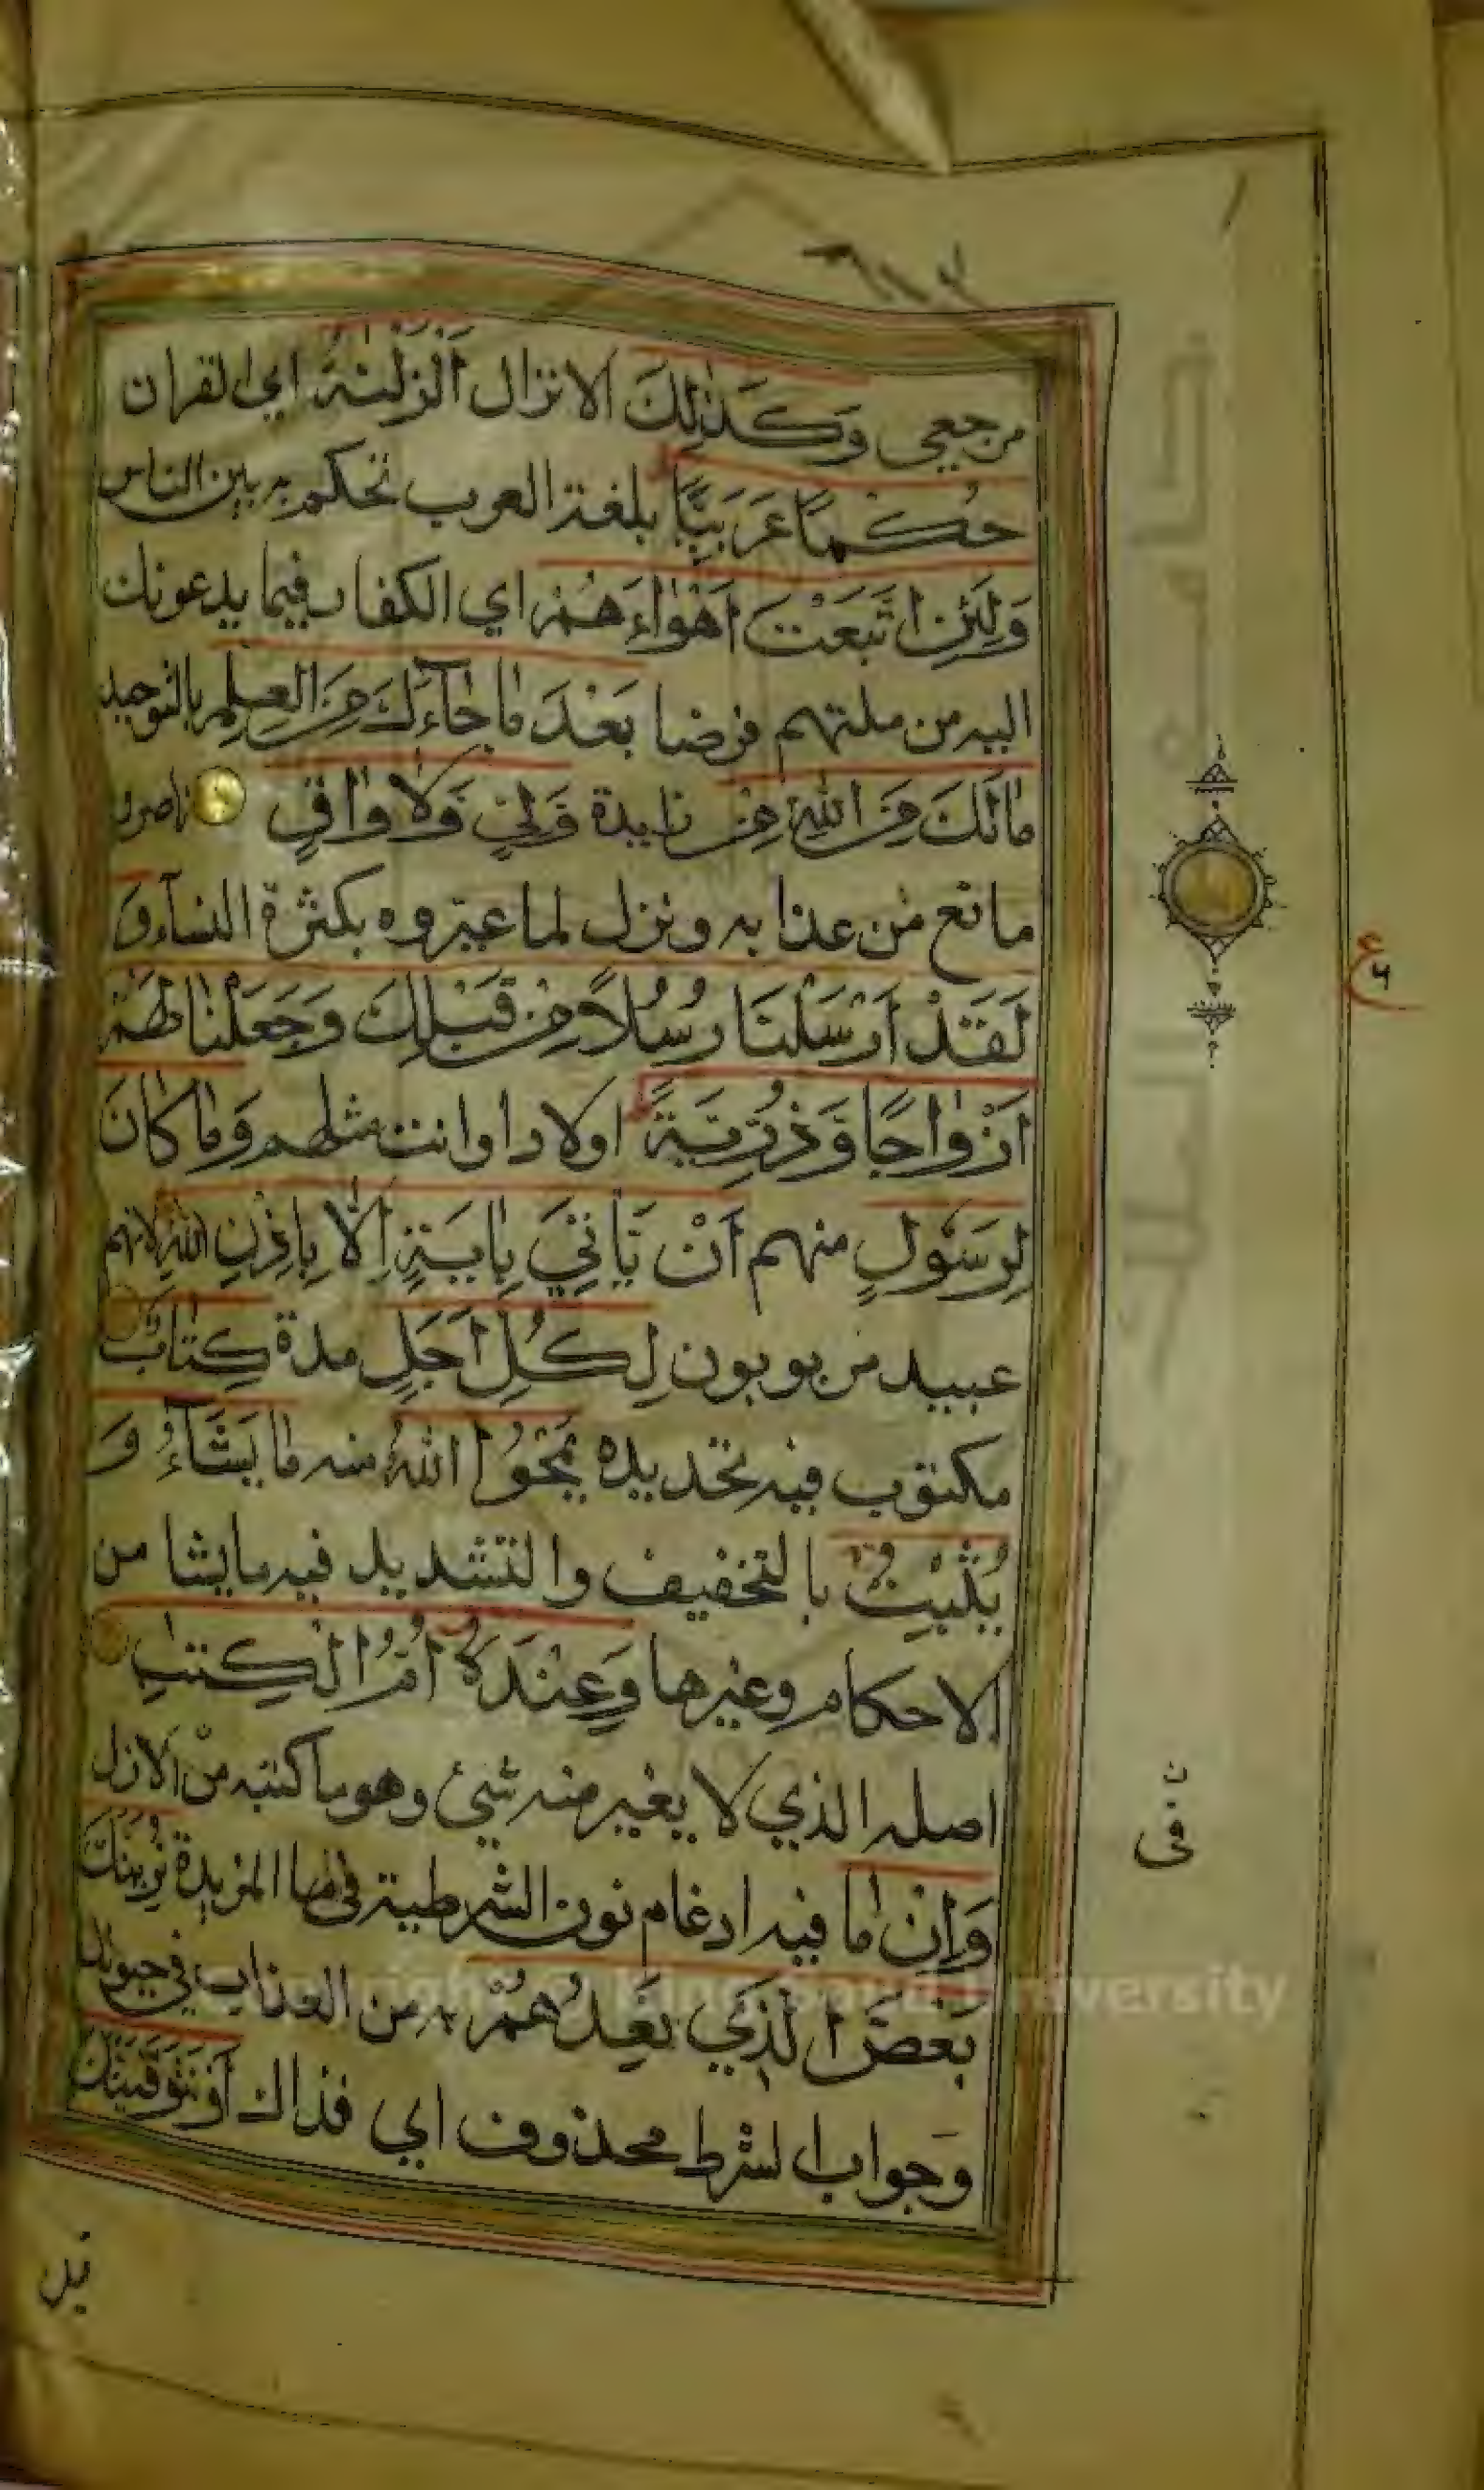 مرجعي وَكَذٰلِكَ الانزال اَنْزَلْنٰهُ اي القران
حُكْمًا عَرَبِيًّا بلغة العرب تحكم به بين الناس
وَلَئِنِ اتَّبَعْتَ اَهْوٰاءَهُمْ اي الكفار فيما يدعونك
اليه من ملتهم فرضا بَعْدَ مٰا جٰآءَكَ مِنَ الْعِلْمِ بالتوحيد
مٰا لَكَ مِنَ اللهِ مِنْ زايدة وَلِيٍّ وَلٰا وٰاقٍ ناصر و
مانع من عذابه ونزل لما عيروه بكثرة النسآء وَ
لَقَدْ اَرْسَلْنَا رُسُلًا مِنْ قَبْلِكَ وَجَعَلْنٰا لَهُمْ
اَزْوٰاجًا وَذُرِّيَّةً اولادا وانت مثلهم وَمٰا كٰانَ
لِرَسُولٍ منهم اَنْ يَأْتِيَ بِاٰيَةٍ اِلّٰا بِاِذْنِ اللهِ لانهم
عبيد مربوبون لِكُلِّ اَجَلٍ مدة كِتٰابٌ
مكتوب فيه تحديده يَمْحُوا اللهُ منه مٰا يَشَآءُ وَ
يُثْبِتُ بالتخفيف والتشديد فيه ما يشا من
الاحكام وغيرها وَعِنْدَهُ اُمُّ الْكِتٰبِ
اصله الذي لا يغير منه شيئ وهو ما كتبه من الازل
وَاِنْ مٰا فيه ادغام نون الشرطية في ما المزيدة نُرِيَنَّكَ
بَعْضَ الَّذِي نَعِدُهُمْ به من العذاب في حيوتك
وجواب الشرط محذوف اي فذاك اَوْ نَتَوَفَّيَنَّكَ
ع
٦
ن
في
قبل
Copyright © King Saud University